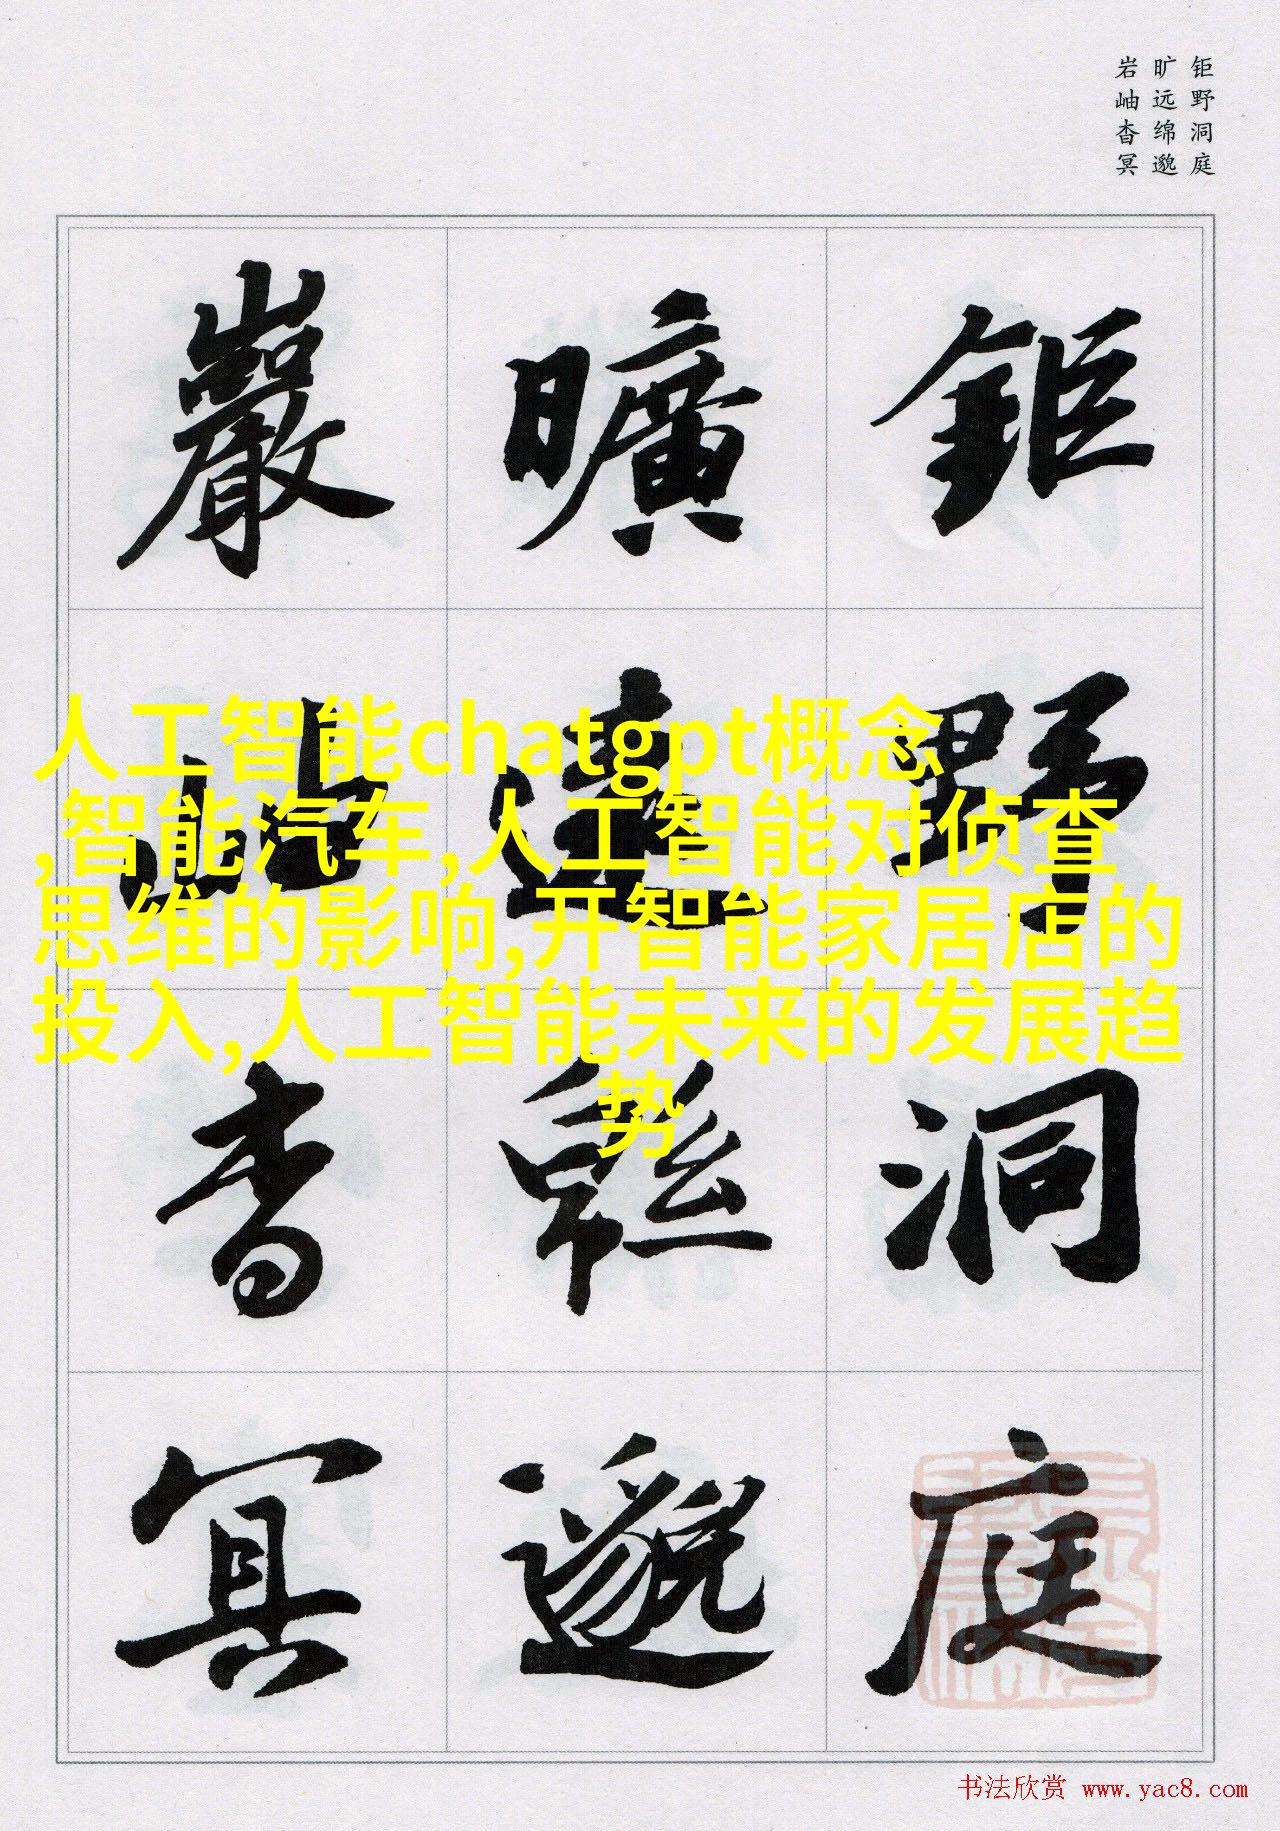 钜野洞庭
旷远绵邈
岩岫杳冥
鉅野洞庭
曠遠緜邈
巖岫杳冥
人工智能chatgpt概念
,智能汽车,人工智能对侦查
思维的影响,开智能家居店的
投入,人工智能未来的发展趋
势
书法欣赏 www.yac8.com